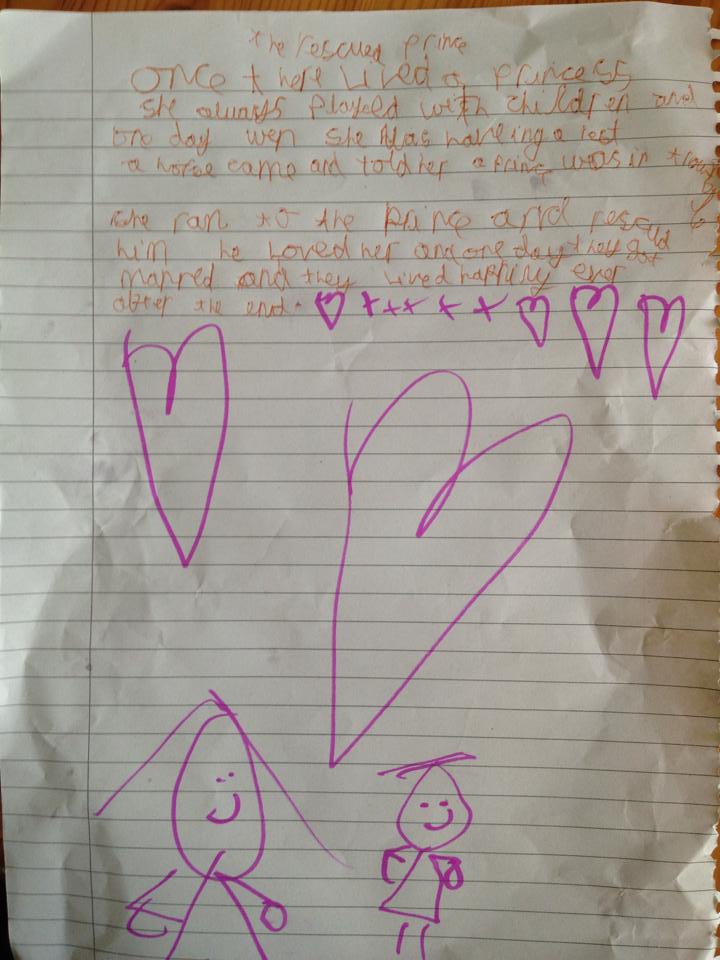 the rescued prince
Once there lived a princess
She always played with children and
one day wen she was haveing a rest
a horse came and told her a prince was in trouble
she ran to the prince and rescued
him he loved her and one day they got
marred and they lived happily ever
after the end.